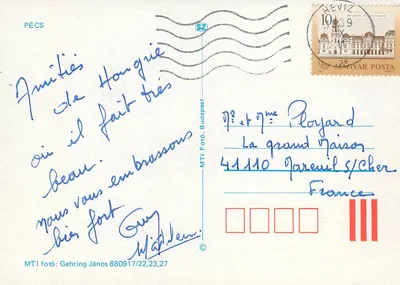 PÉCS
SZ
HEVIZ
10 Ft
MAGYAR POSTA
Amitiés
de Hongrie
où il fait très
beau.
nous vous embrassons
bien fort
Guy
MTI Fotó, Budapest
©
Mr et Mme Ployard
La grand Maison
41110 Mareuil S/Cher
France
MTI fotó: Gehring János 880917/22,23,27